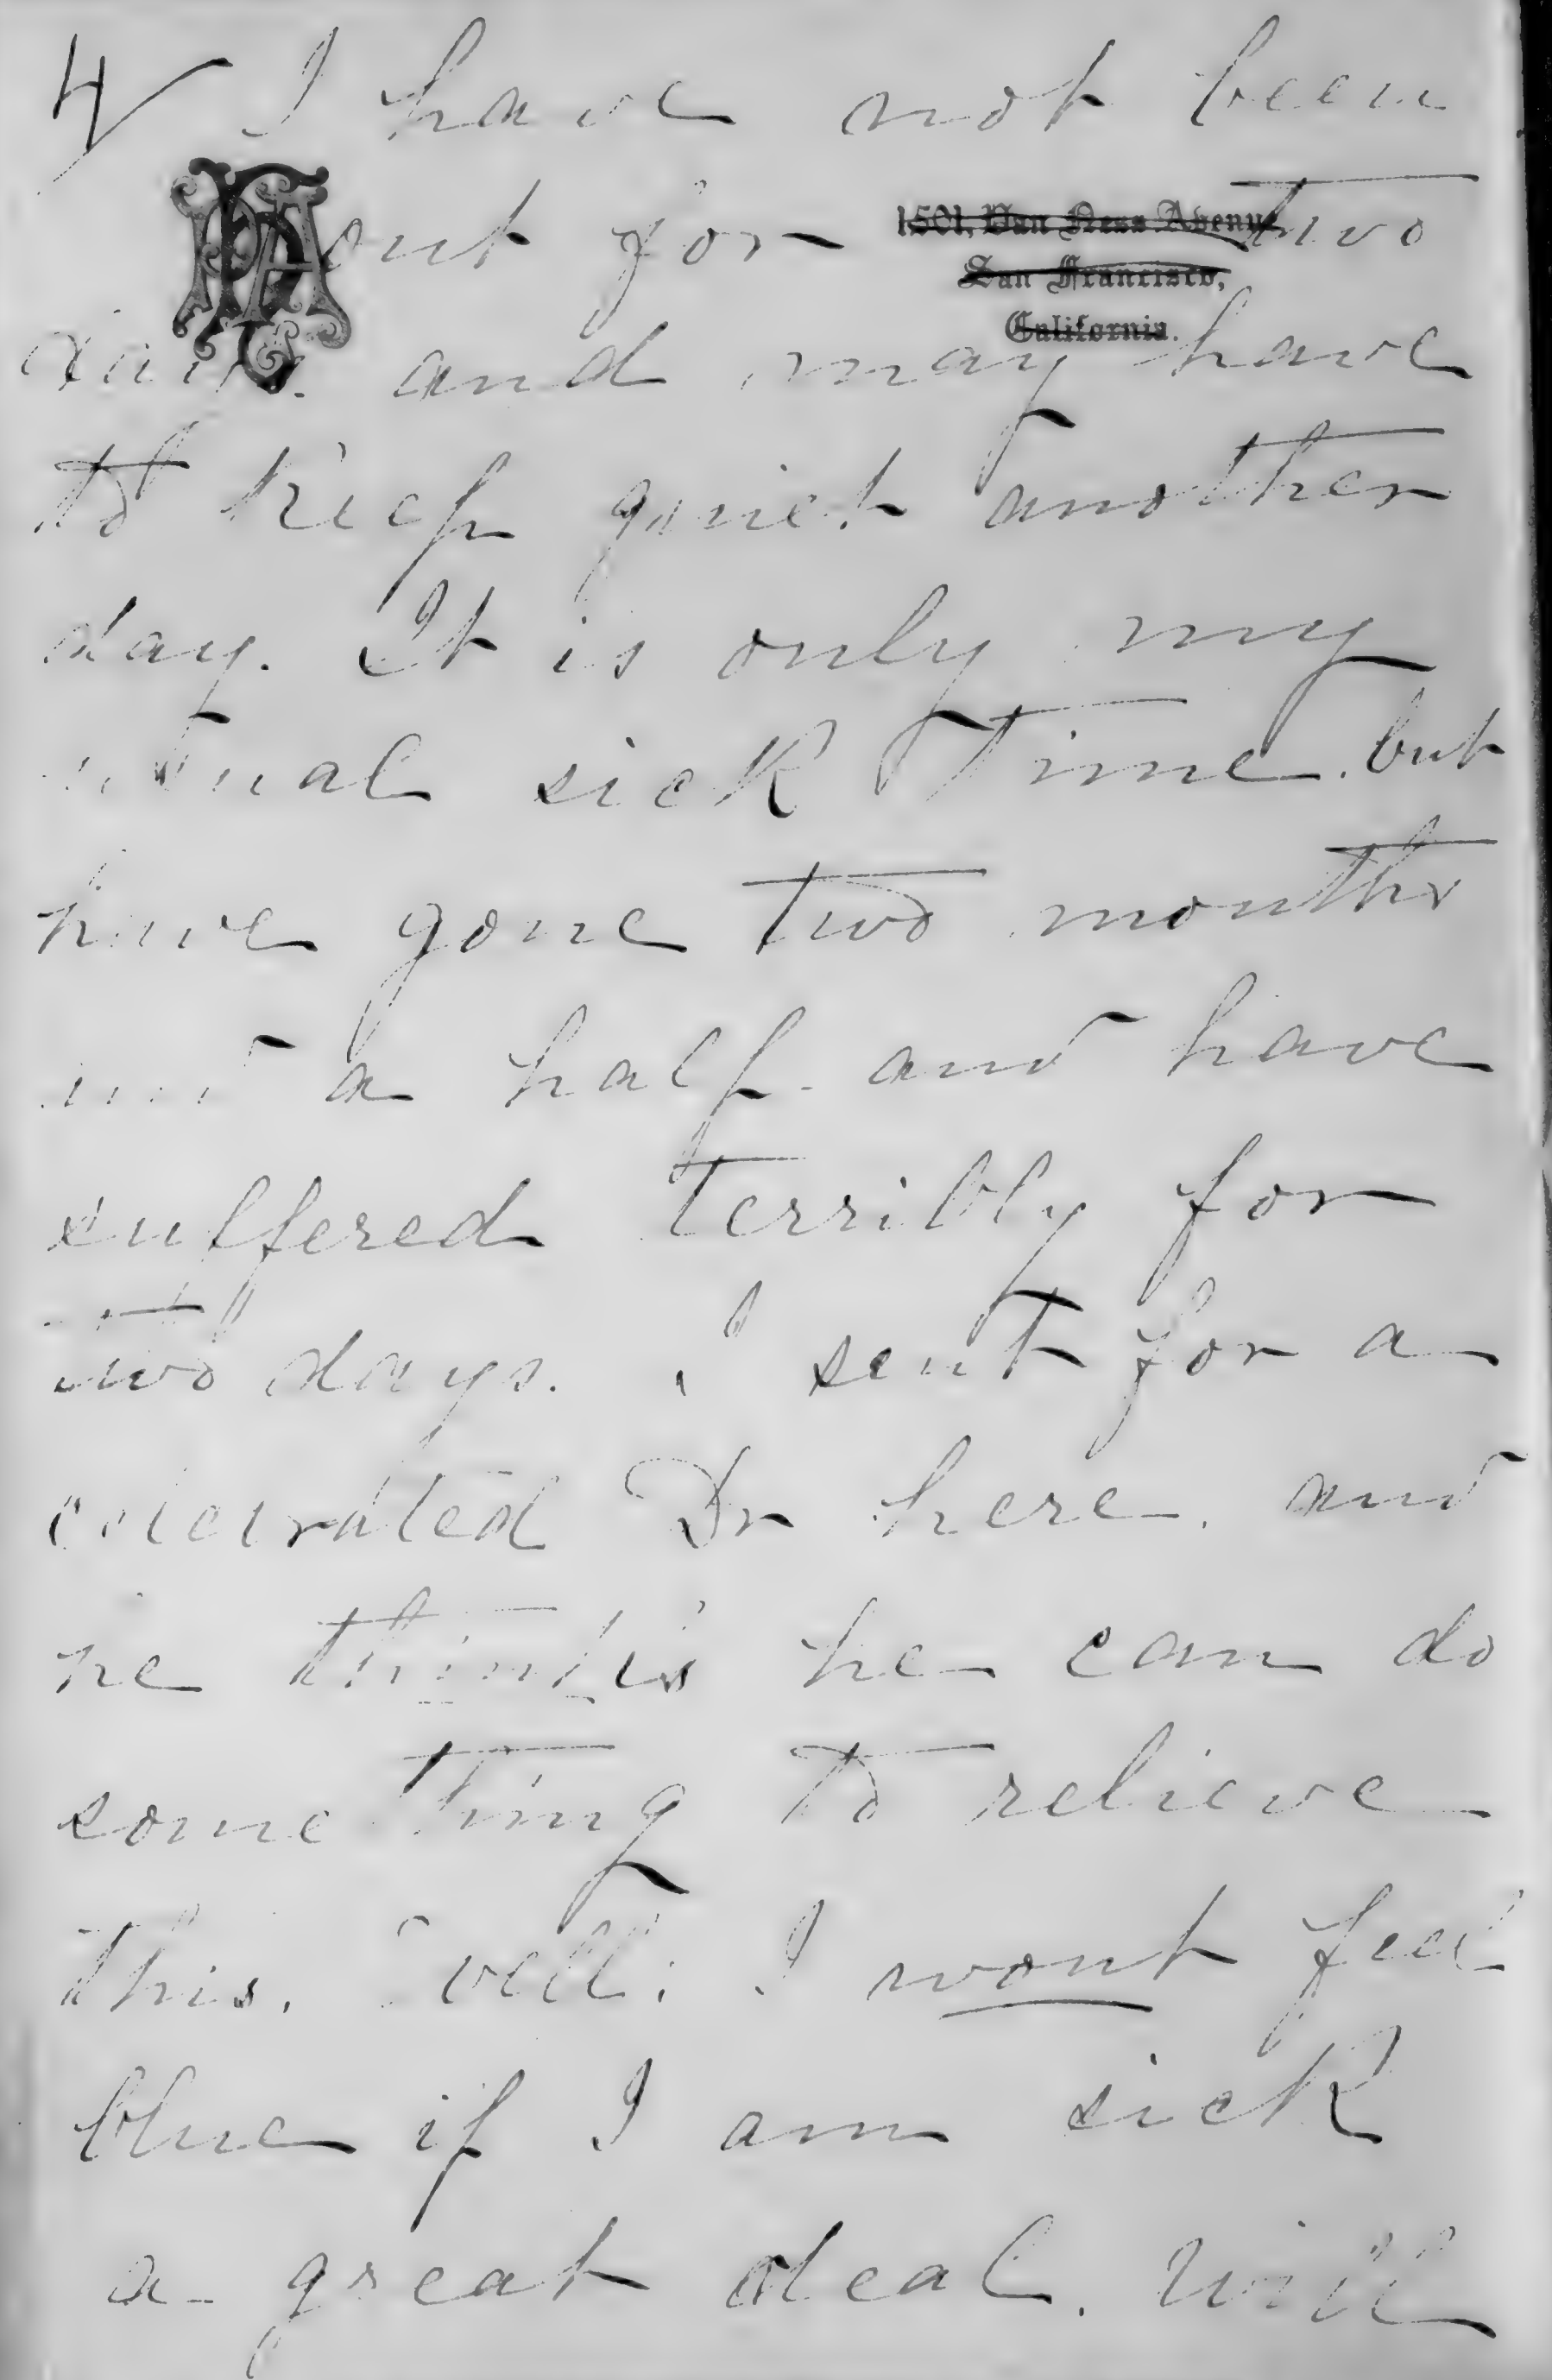 4 I have not been
1501, Van Ness Avenue
San Francisco,
California.
out for two
days. and may have
to keep quiet another
day. It is only my
usual sick time. but
have gone two months
and a half - and have
suffered terribly for
two days. I sent for a
celebrated Dr here. and
he thinks he can do
some thing to relieve
this. Well: I wont feel
blue if I am sick
a great deal. Will